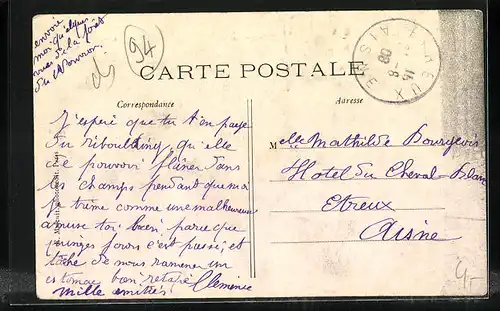 envoie
moi quelques
vues de la forêt
du Nouvion.
94
CARTE POSTALE
Correspondance
Adresse
ETREUX
AISNE
J'espère que tu t'en paye
du riboulding, qu'elle
de pouvoir flâner dans
les champs pendant que moi
je trime comme une malheureuse
amuse toi bien, parce que
quinze jours c'est passé, et
tâche de nous ramener un
estomac bien retapé Clémence
mille amitiés
Melle Mathilde Bourgeois
Hotel du Cheval Blanc
Etreux
Aisne